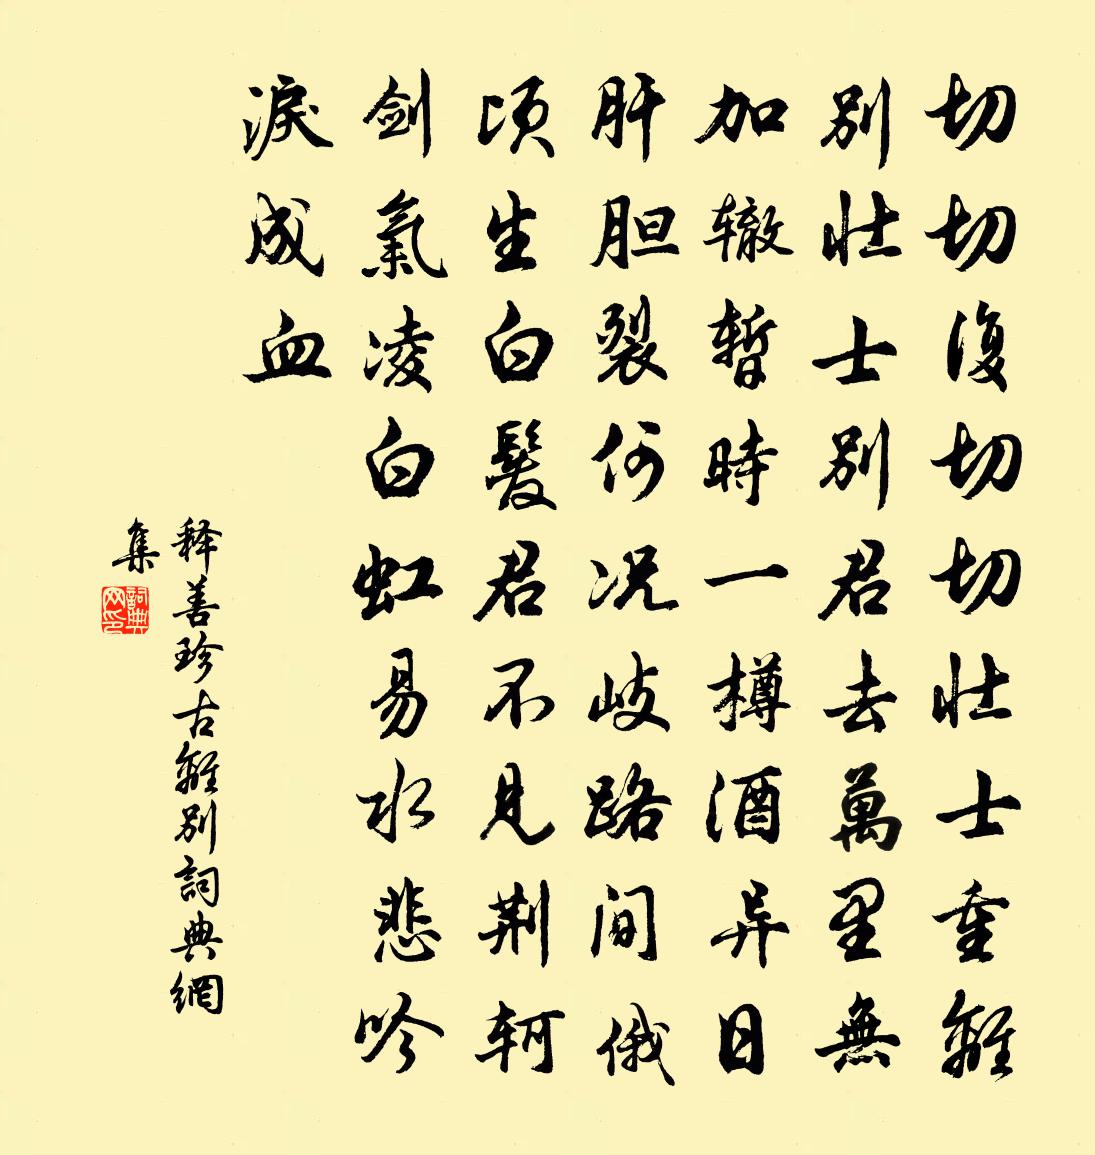 切切復切切壯士重離
別壯士別君去萬里無
加辙暫時一樽酒异日
肝胆裂何况岐路间俄
頃生白髮君不見荆轲
劍氣凌白虹易水悲吟
淚成血
释善珍古離別詞典網
集
詞典
网印